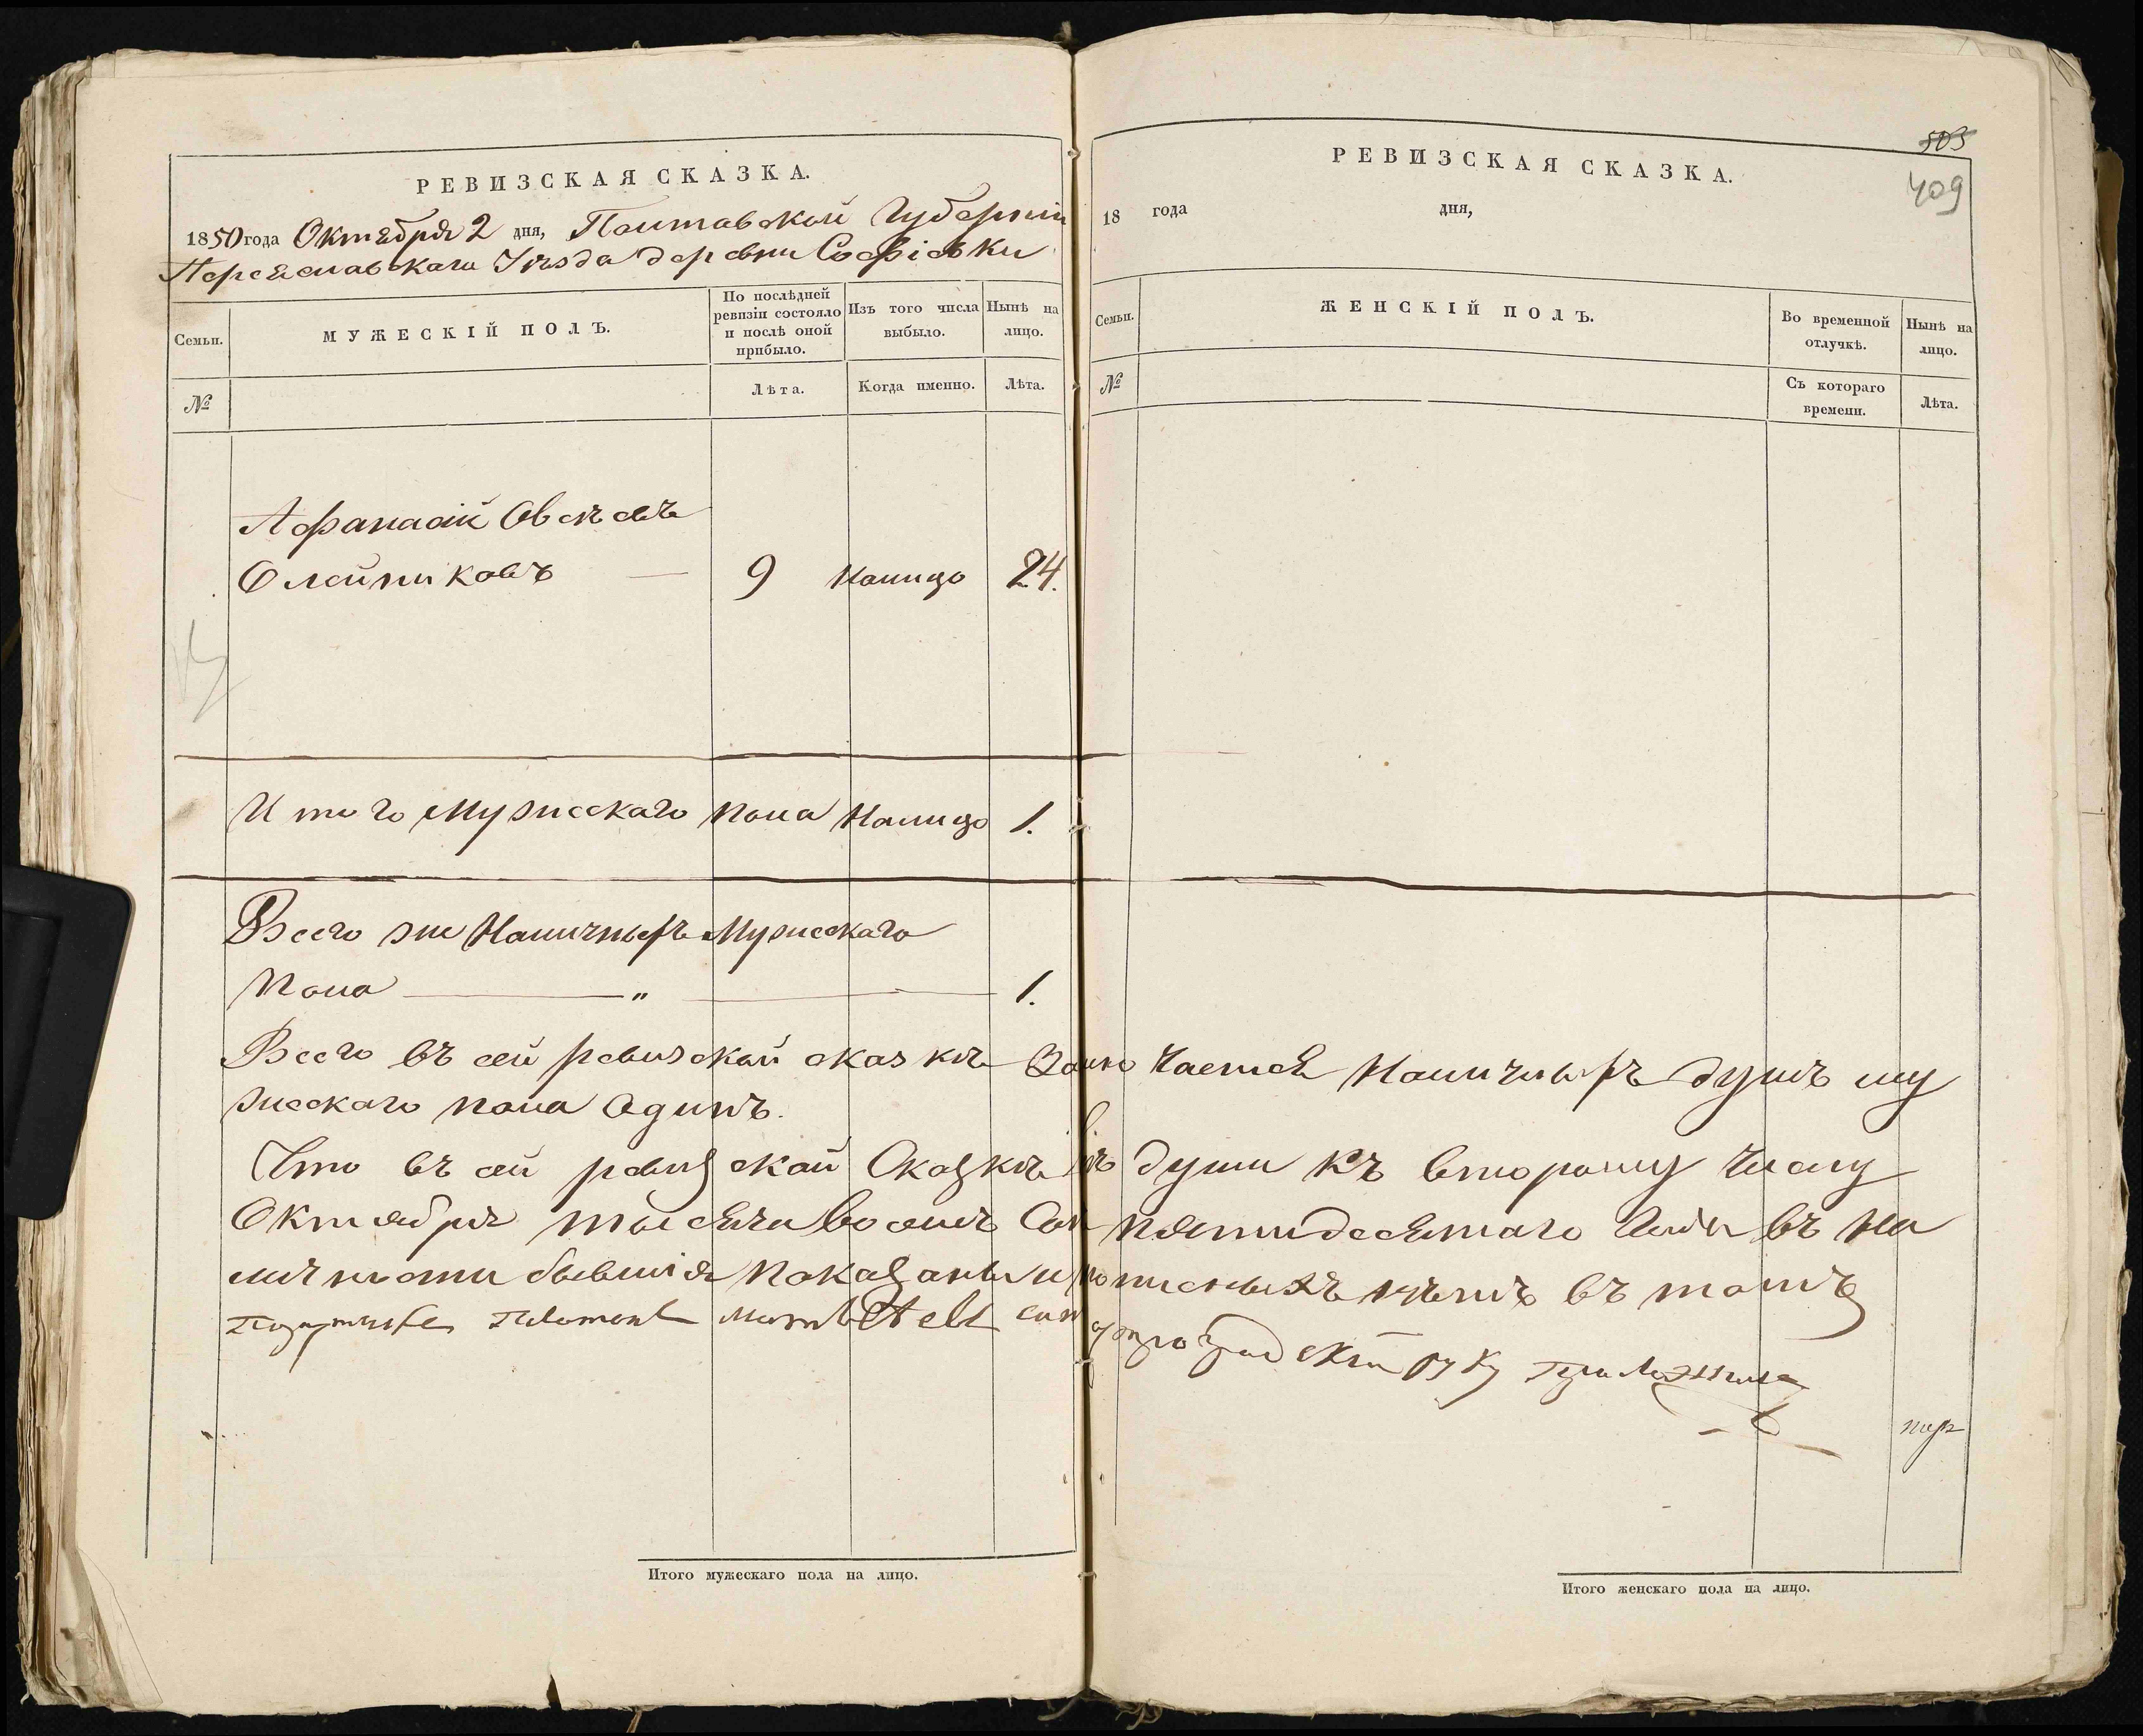 РЕВИЗСКАЯ СКАЗКА.
1850 года Октября 2 дня, Полтавской Губерніи
Переяславскаго Уѣзда деревни Софіевки
Семьи.
МУЖЕСКІЙ ПОЛЪ.
По послѣдней ревизіи состояло и послѣ оной прибыло.
Изъ того числа выбыло.
Нынѣ на лицо.
№
Лѣта.
Когда именно.
Лѣта.
Афанасій Овсѣевъ
Олейниковъ — 9 налицо 24.
Итого Мужескаго пола налицо 1.
Всего же Наличныхъ Мужескаго
пола — " — 1.
505
409
РЕВИЗСКАЯ СКАЗКА.
18 года дня,
Семьи.
ЖЕНСКІЙ ПОЛЪ.
Во временной отлучкѣ.
Нынѣ на лицо.
№
Съ котораго времени.
Лѣта.
Всего въ сей ревизской сказкѣ Заключается Наличныхъ душъ му
жескаго пола Одинъ.
Что въ сей ревизской Сказкѣ всѣ души къ второму Числу
Октября тысяча восемь Сот пятидесятаго Года въ на
личности бывшія показаны и прописныхъ нѣтъ въ томъ
руку приложилъ
Итого мужескаго пола на лицо.
Итого женскаго пола на лицо.